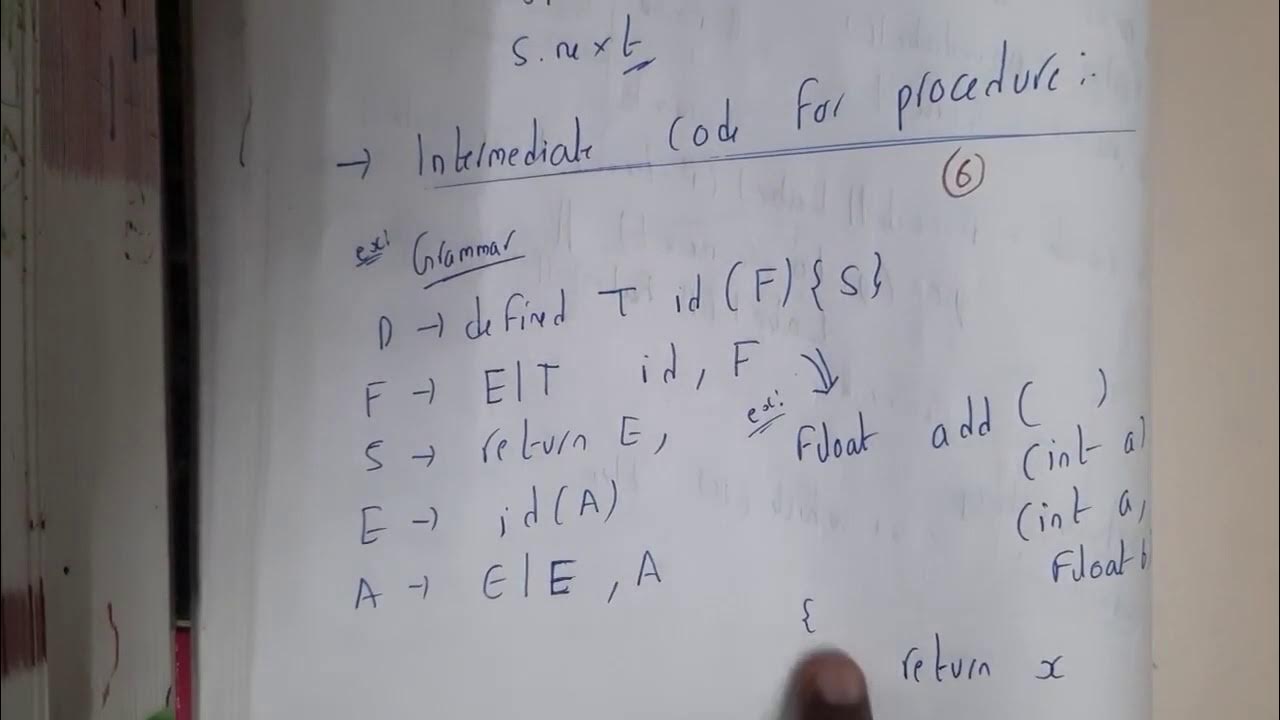 S.next
→ Intermediate Code For procedure :-
(6)
ex: Grammar
D → defined T id (F) {S}
F → E | T id, F
S → return E,
E → id(A)
A → E | E , A
ex: Float add ( )
(int a)
(int a,
Float b
{
return x